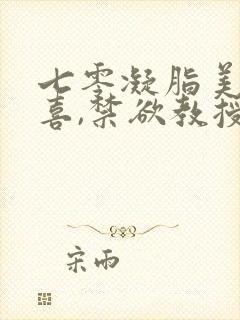 七零凝脂美
喜,禁欲教授
宋雨